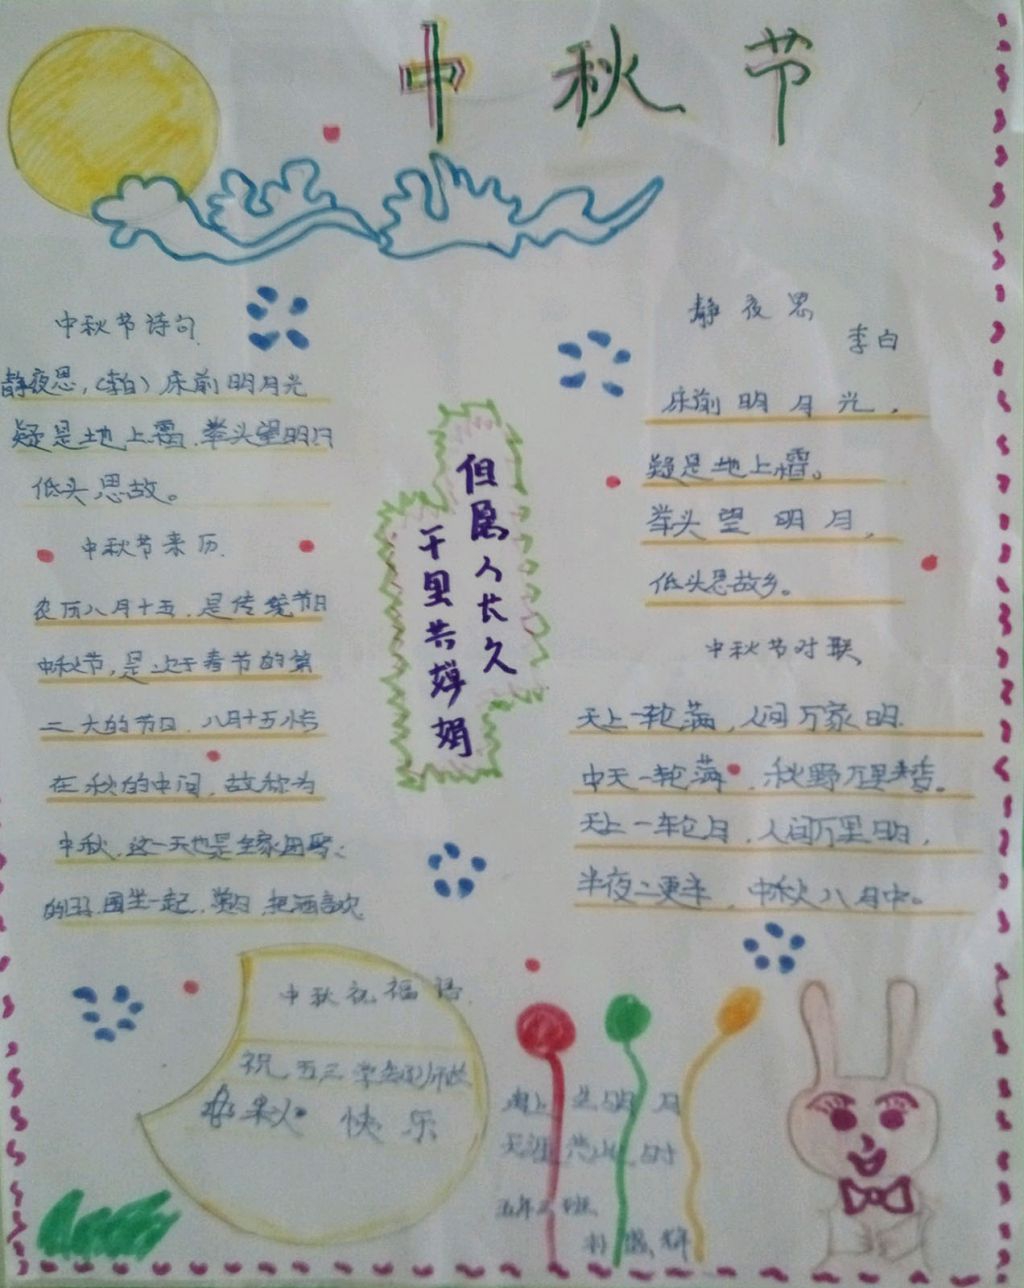 中秋节
中秋节诗句
静夜思,(李白)床前明月光
疑是地上霜.举头望明月
低头思故。
中秋节来历.
农历八月十五.是传统节日
中秋节,是次于春节的第
二大的节日.八月十五恰
在秋的中间,故称为
中秋.这一天也是全家团聚
的日.围坐一起.赏月.把酒言欢
但愿人长久
千里共婵娟
静夜思
李白
床前明月光,
疑是地上霜。
举头望明月,
低头思故乡。
中秋节对联
天上一轮满,人间万家明.
中天一轮满,秋野万里香。
天上一轮月,人间万里明,
半夜二更半,中秋八月中。
中秋祝福语.
祝五三
中秋快乐
海上 明月
天涯共 时
五年 班.